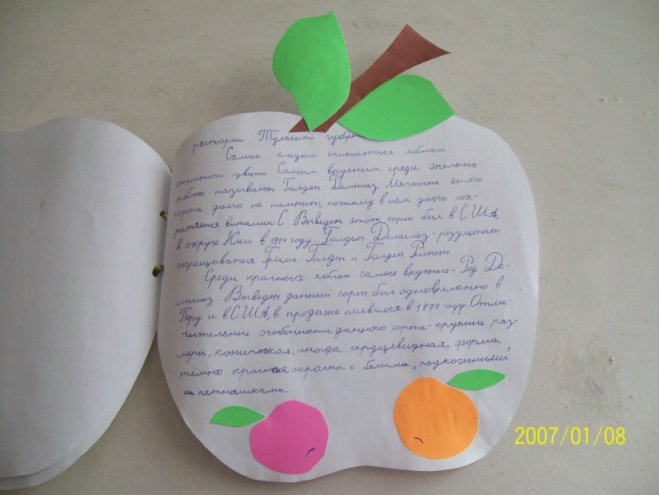 ритории Тульской губернии
Самые сладкие считаются яблоки
желтого цвета Самым вкусным среди желтых
яблок называют Голден Делишез Мякоть этого
сорта долго не темнеет, поэтому в нем долго сох-
раняется витамин С Выведен этот сорт был в США,
в округе Клей в 1914 году Голден Делишез - результат
скрещивания Гримс Голден и Голден Рейнет
Среди красных яблок самые вкусные - Ред Де-
лишез. Выведен данный сорт был одновременно в
Перу и в США, в продаже появился в 1874 году Отли-
чительные особенности данного сорта - крупные раз-
меры, коническая, иногда сердцевидная, форма,
темно красная окраска с белыми „подкожными"
пятнышками.
2007/01/08